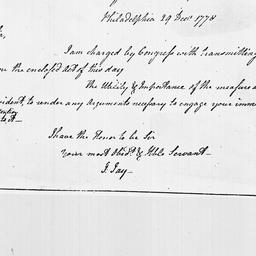 Philadelphia 29 Decr 1778
I am charged by Congress with transmitting
the enclosed Act of this day
The Utility & Importance of the measure a
vident, to render any Arguments necessary to engage your imme
I have the Honor to be Sir
your most Obedt & Hble Servant
J. Jay